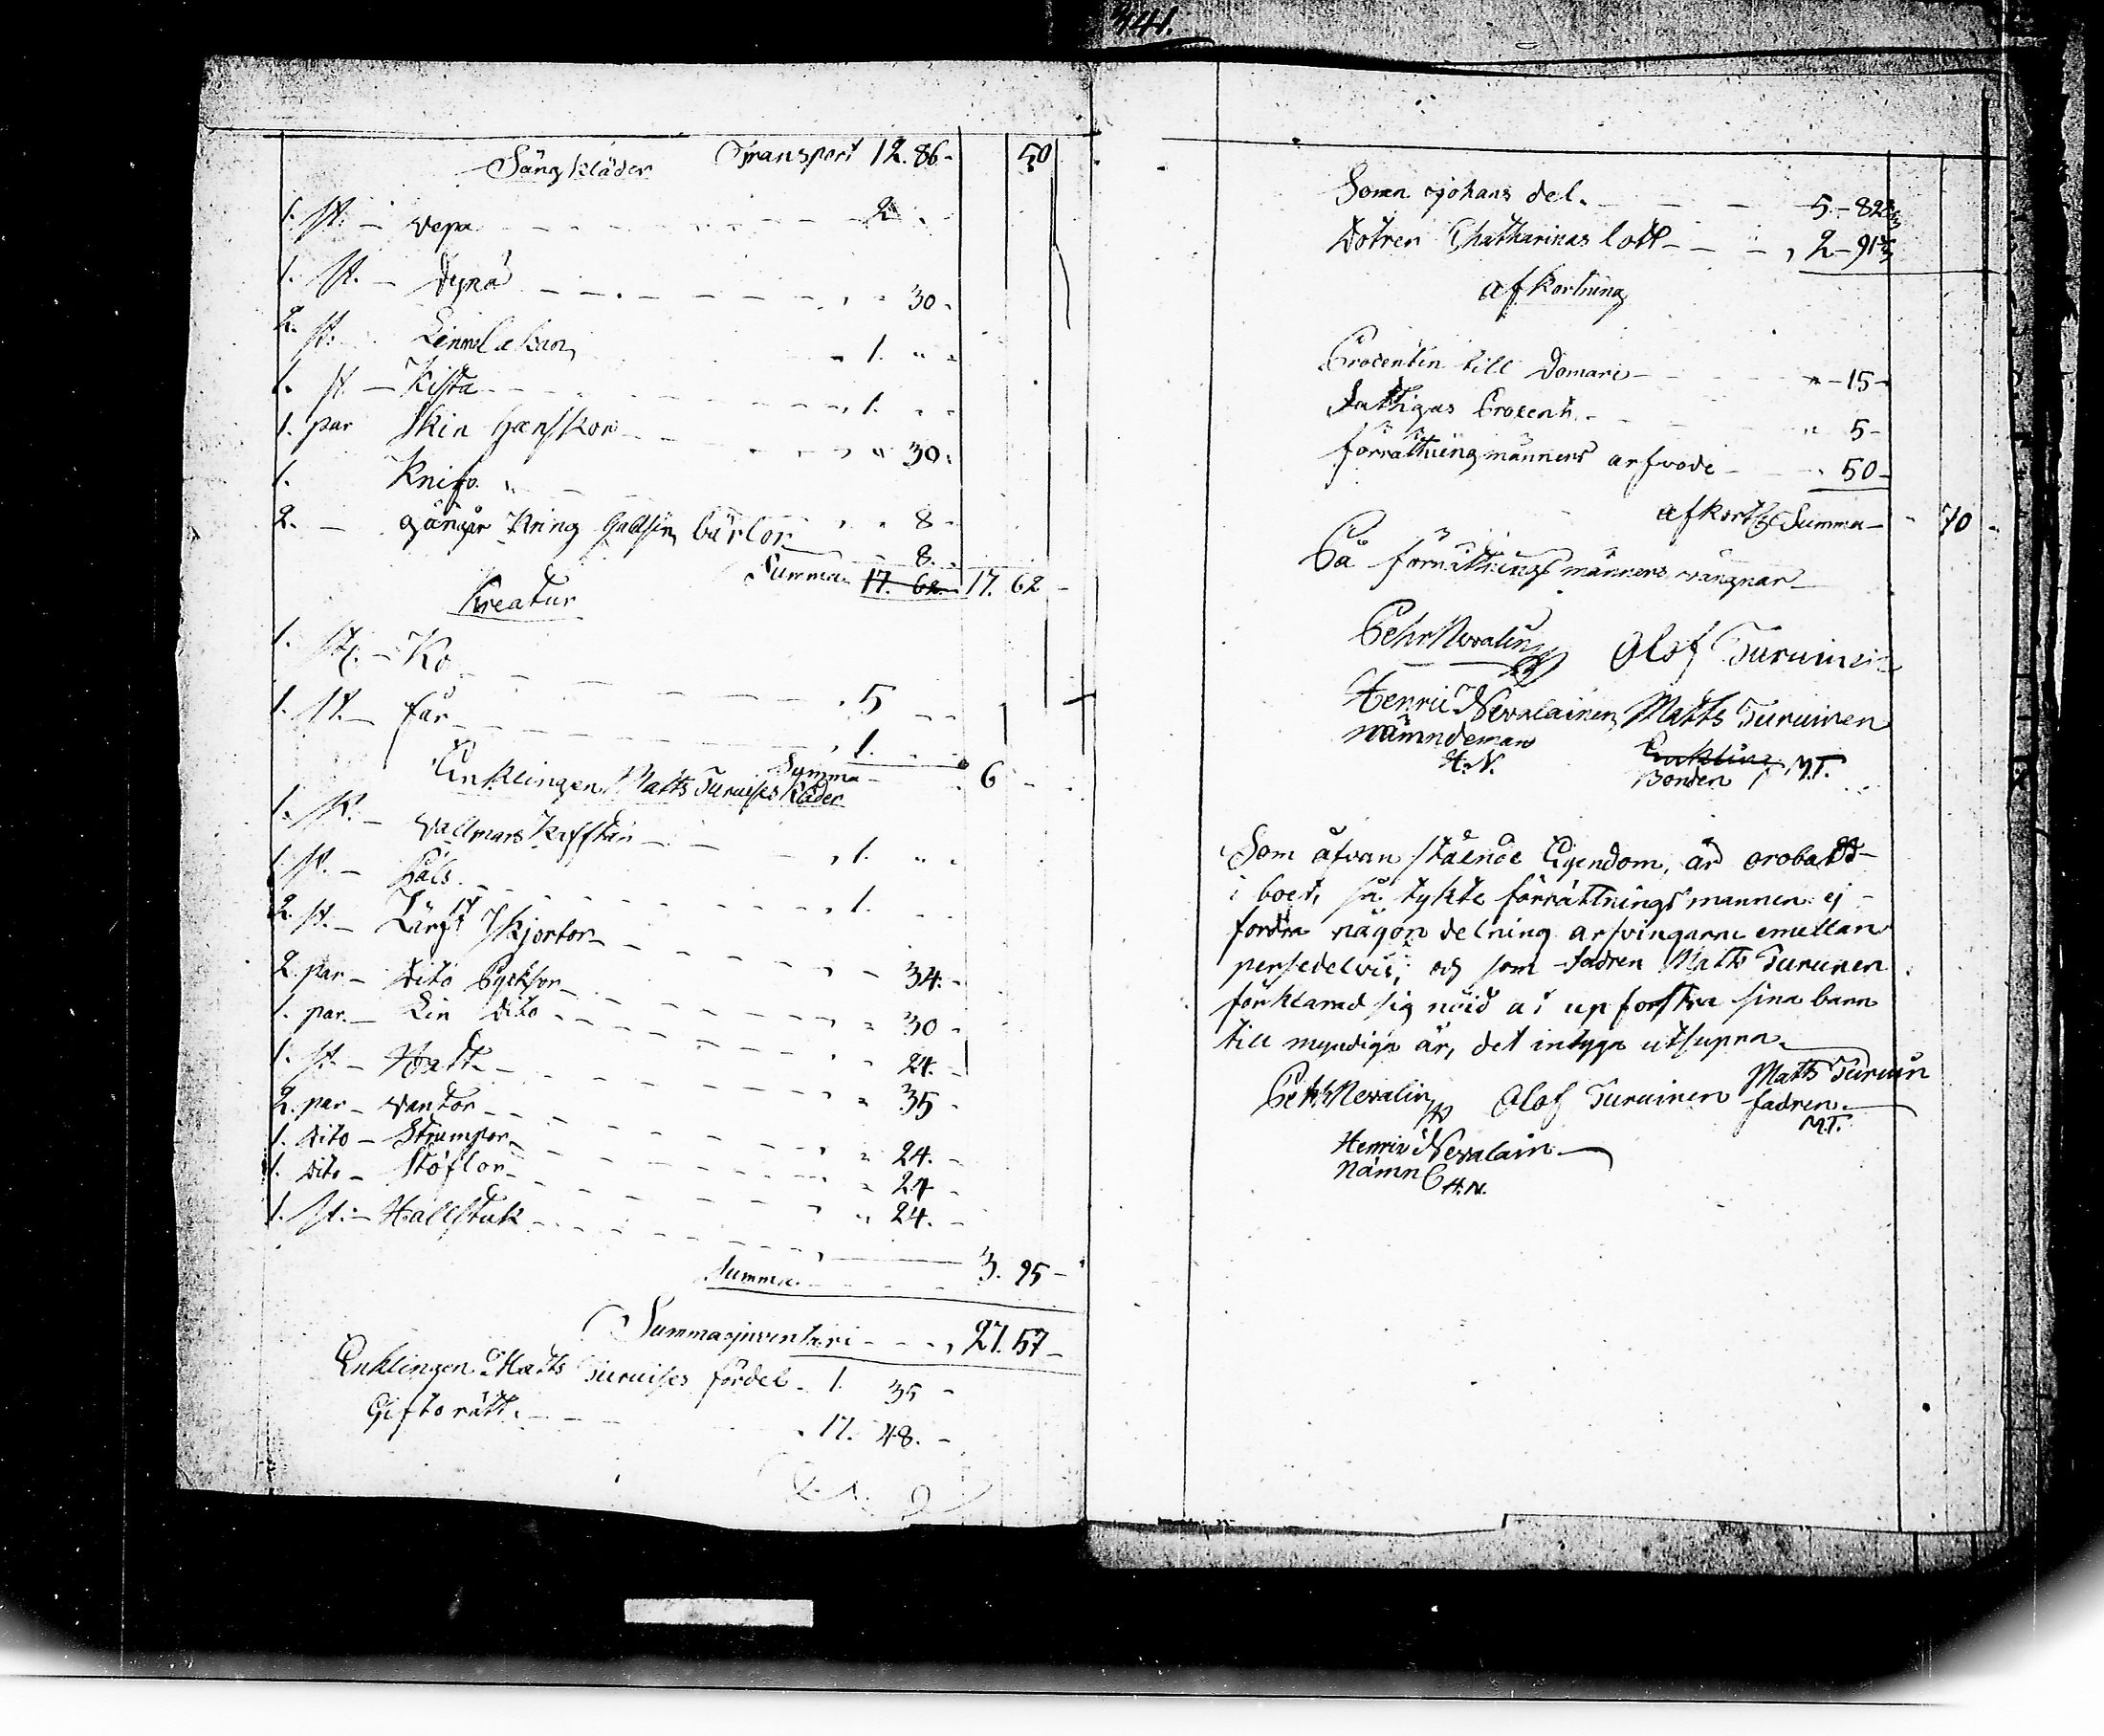 341.
Sängkläder Transport 12. 86 - 50
1. st. - Vepa - - - 2 . -
1. st. - Dyna - - - " 30 -
2. st. Linnlakan - 1. " -
1. st. - Kista - - - 1. - -
1. par Skin Hanskor - - - " 30.
1. Knifv. " - - - 8 -
2. - gångår Kring bärlor - 8. -
Summa 17. 62 - 17. 62 -
Kreatur
1. st. - Ko - - - 5 - -
1. st. - får - - - 1. - -
Summa - 6 - -
Enklingen Matts Turuises Kläder
1. st. - Vallmars Kafftan - - - 1. " -
1. st. - Päls - - - 1. - -
2. st. - Lärft Skjortor - - - 34. -
2. par - Dito Byxsor - - - 30 -
1. par. - Lin Dito - - - 24. -
1. st. - Hatt - - - 35 -
2. par - Vantor - - - 24. -
1. Dito - Strumpor - - - 24 -
1. Dito - Stöflor - - - 24. -
1. st. - Hallstuk - - -
Summa - - - 3. 95 -
Summa inventari - - - 27. 57 -
Enklingen Matts Turuises fördel - 1. 35 -
Giftorätt. - - - 17. 48. -
Sonen Johans del. - - - 5 - 82 2/3
Dotren Chatharinas lott - - - 2 - 91 1/3
afkortning
Procentin till Domare - - - " - 15 -
Fattigas Procent. - - - " 5 -
förrättningmänners arfvode - - - 50 -
afkortg Summa - - 70 -
På förrättnings männers vängnar -
Pehr Nevalin Olof Turuinen
Henric Nevalainen Matts Turuinen
nämndeman Enkling
H. N. Bonden M.T.
Som åfvan stående Egendom, är orobatt -
i boet, så tykte förrättningsmannen ej -
fordra någon delning arfvingarne emellan
persedelvis, og som fadren Matts Turunen
förklarad sig nöid at upforstra sina barn
till myndiga år, det intyga utsupra.
Pehr Nevalin Olof Turuinen Matts Turuin
fadren.
M.T.
Henric Nevalain
Nämn H.N.